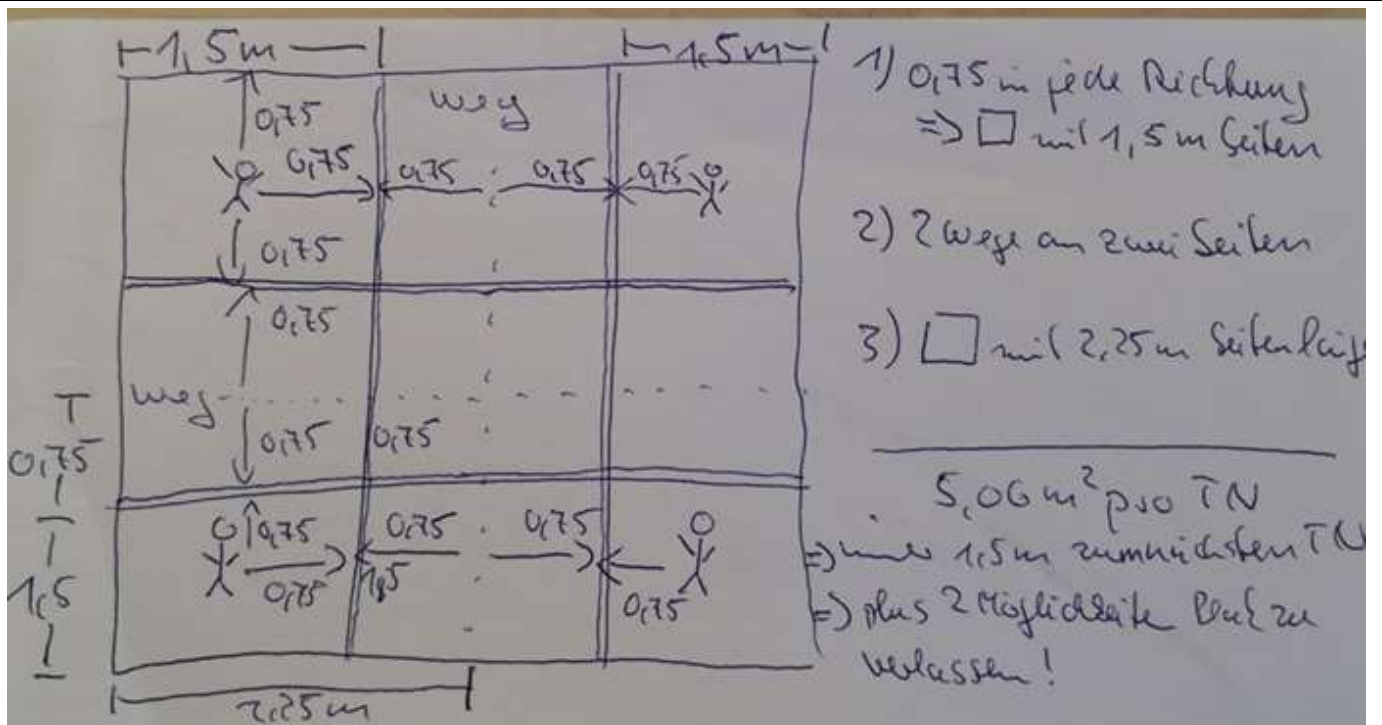 1,5m 1,5m
0,75 weg
0,75 0,75 0,75 0,75
0,75
0,75
weg
0,75 0,75
0,75 0,75 0,75
0,75 1,5 0,75
2,25m
T
0,75
1,5
1) 0,75 in jede Richtung
=> □ mit 1,5 m Seiten
2) 2 Wege an zwei Seiten
3) □ mit 2,25m Seitenläng
5,06 m² pro TN
=> 1,5m zum nächsten TN
=> plus 2 Möglichkeite zu
verlassen!